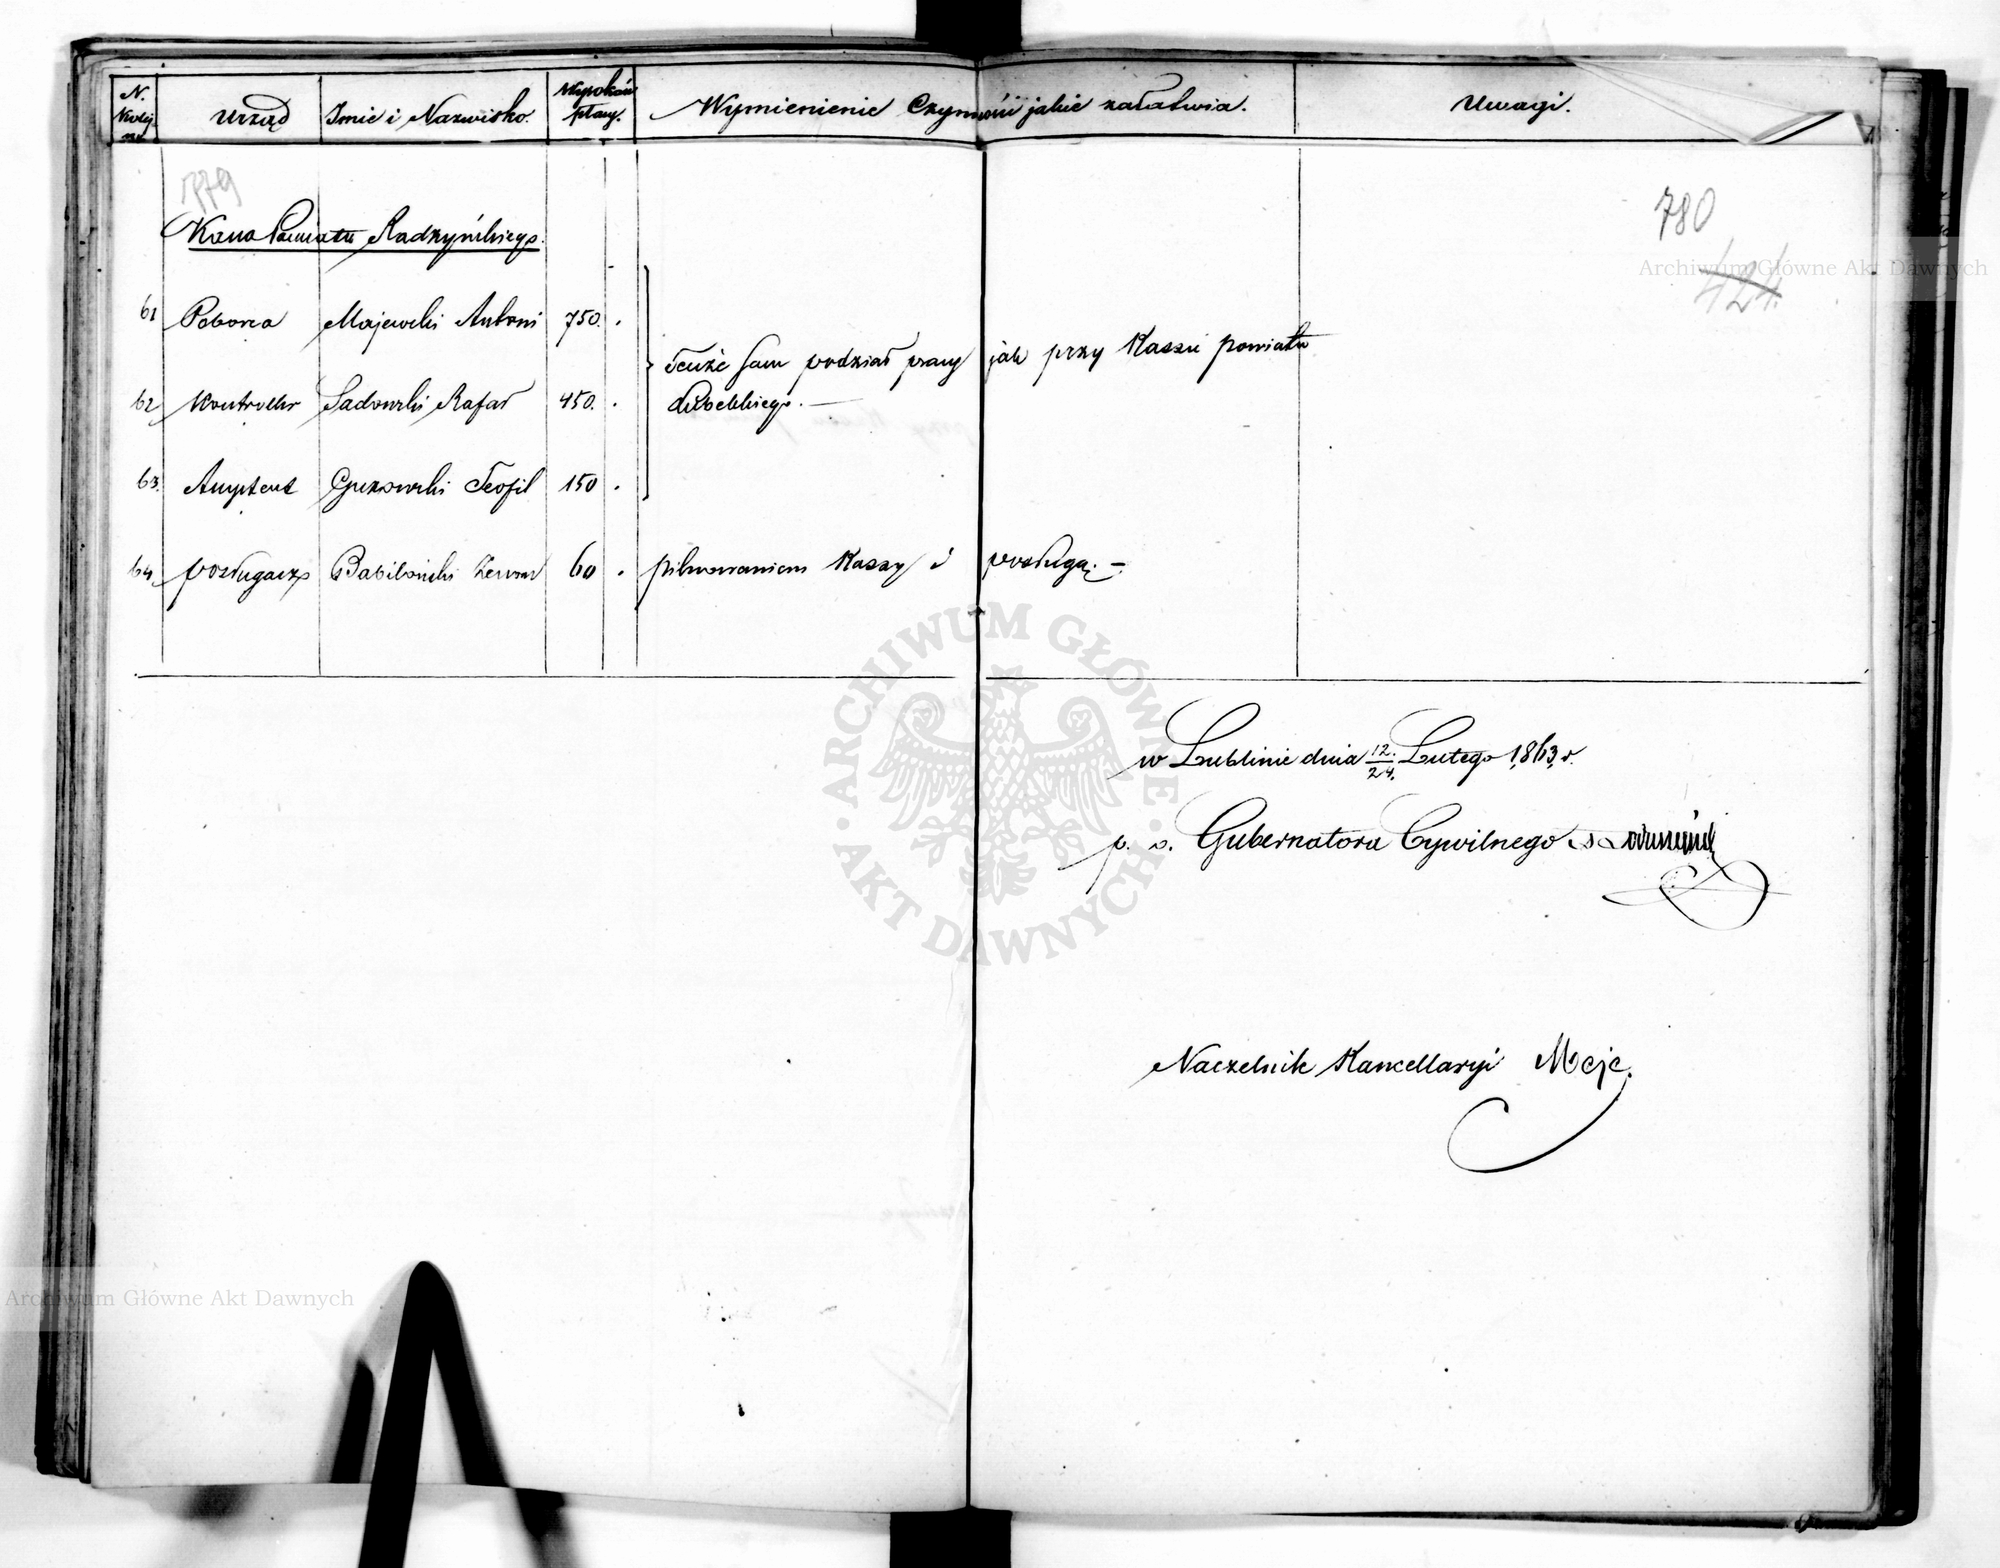 N. Kolej ny
Urząd
Imie i Nazwisko.
Wysokość płacy.
Wymienienie Czynności jakie załatwia.
Uwagi.
779
780
424
Kassa Powiatu Radzyńskiego.
61 Poborca Majewski Antoni 750.
62 Kontroller Sadowski Rafał 450.
63. Assystent Guzowski Teofil 150
Tenże sam podział pracy jak przy Kassie powiatu
Lubelskiego. —
64. posługacz Babiloński 60 pilnowaniem Kassy i posługą. —
w Lublinie dnia 12/24. Lutego 1863 r.
p. o. Gubernatora Cywilnego
Naczelnik Kancellaryi
Archiwum Główne Akt Dawnych
ARCHIWUM GŁÓWNE · AKT DAWNYCH ·
Archiwum Główne Akt Dawnych